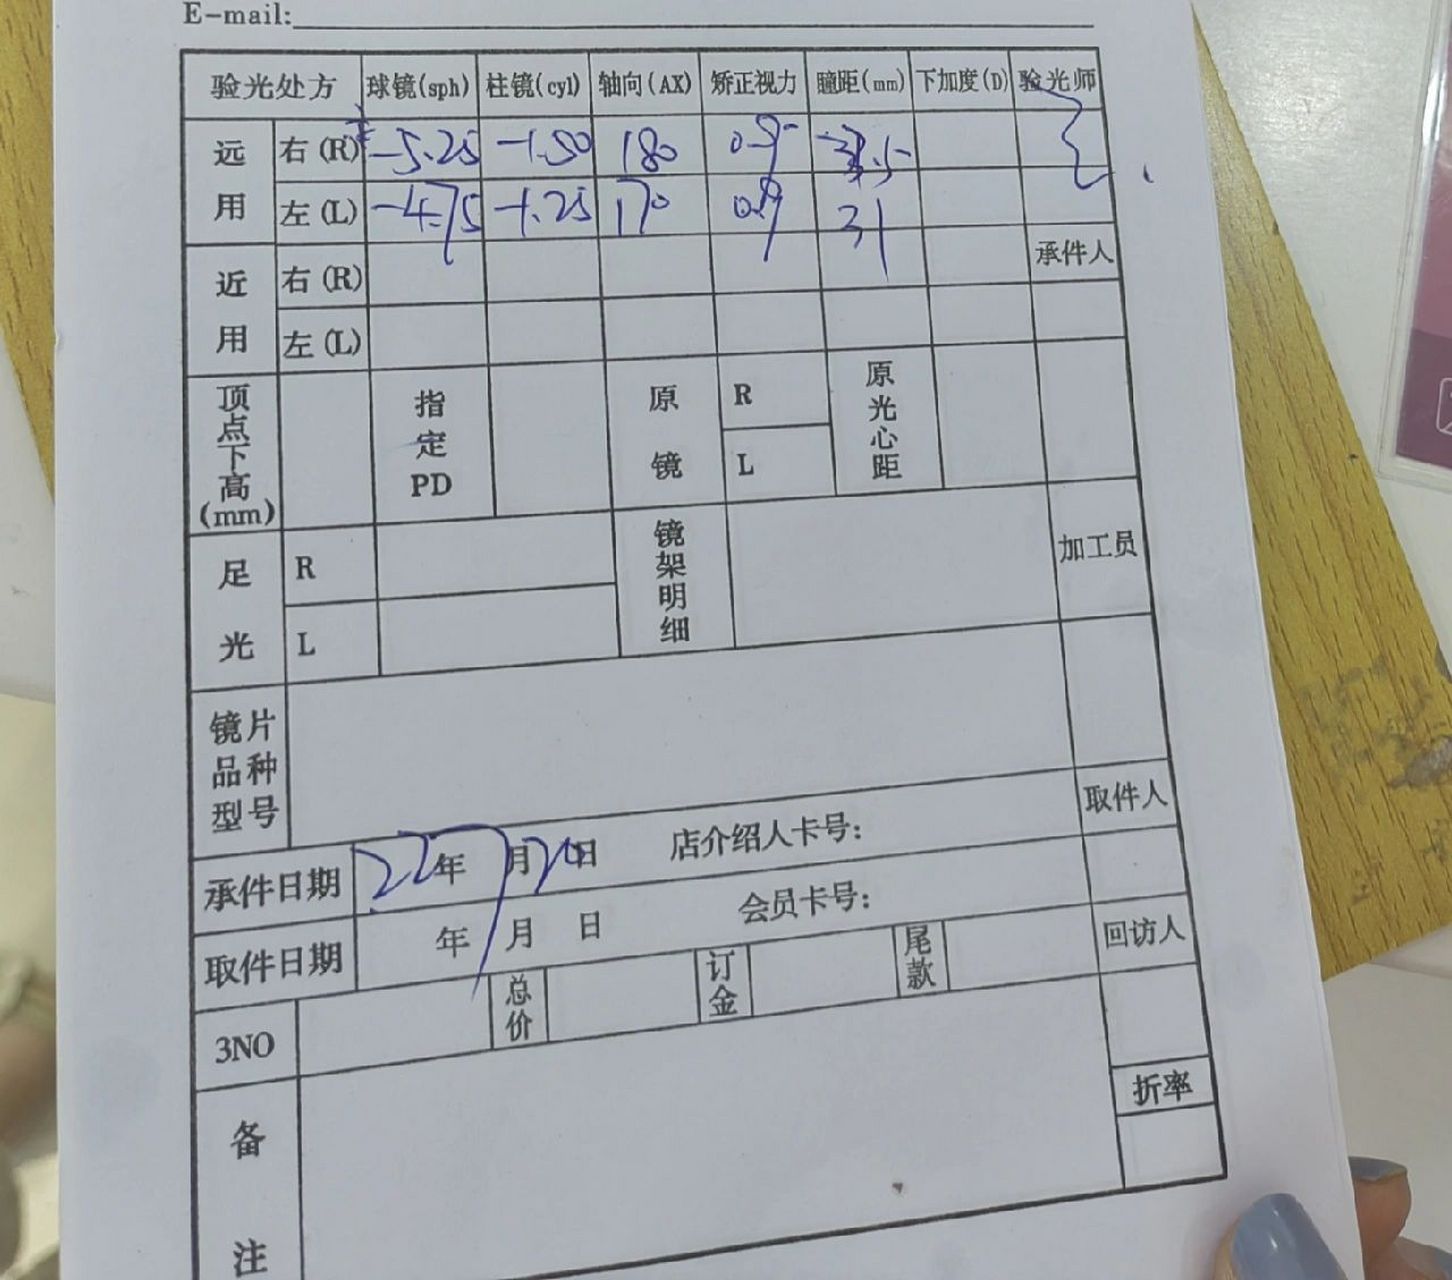 E-mail:
验光处方 球镜(sph) 柱镜(cyl) 轴向(AX) 矫正视力 瞳距(mm) 下加度(D) 验光师
远用 右(R) -5.25 -1.50 180 0.9-
左(L) -4.75 -1.25 170 0.9 31
近用 右(R) 承件人
左(L)
顶点下高(mm) 指定PD 原镜 R 原光心距
L
足光 R 镜架明细 加工员
L
镜片品种型号
取件人
承件日期 22年7月20日 店介绍人卡号:
取件日期 年 月 日 会员卡号:
回访人
3NO 总价 订金 尾款
折率
备注